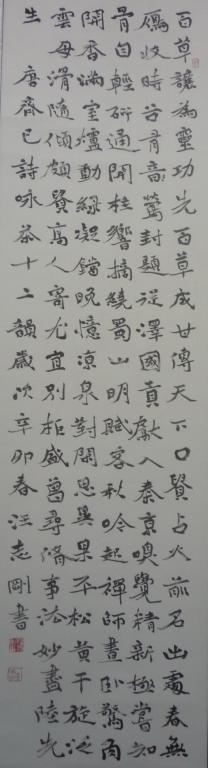 百草讓為靈功先百草成甘傳天下口貴占火前名出處春無
鴈收時谷有鶯封題從澤國貢獻入秦京嗅覺精新極嘗知
骨自輕研通開柱響摘繞蜀山明賦客秋吟起禪師晝臥驚角
開香滿室爐動綠凝鐺晚憶涼泉對閑思異果平松黃干旋泛
雲母滑隨傾頗貴高人寄尤宜別柜盛曾尋脩事法妙盡陸先
生 唐齊已詩咏茶十二韻歲次辛卯春汪志剛書